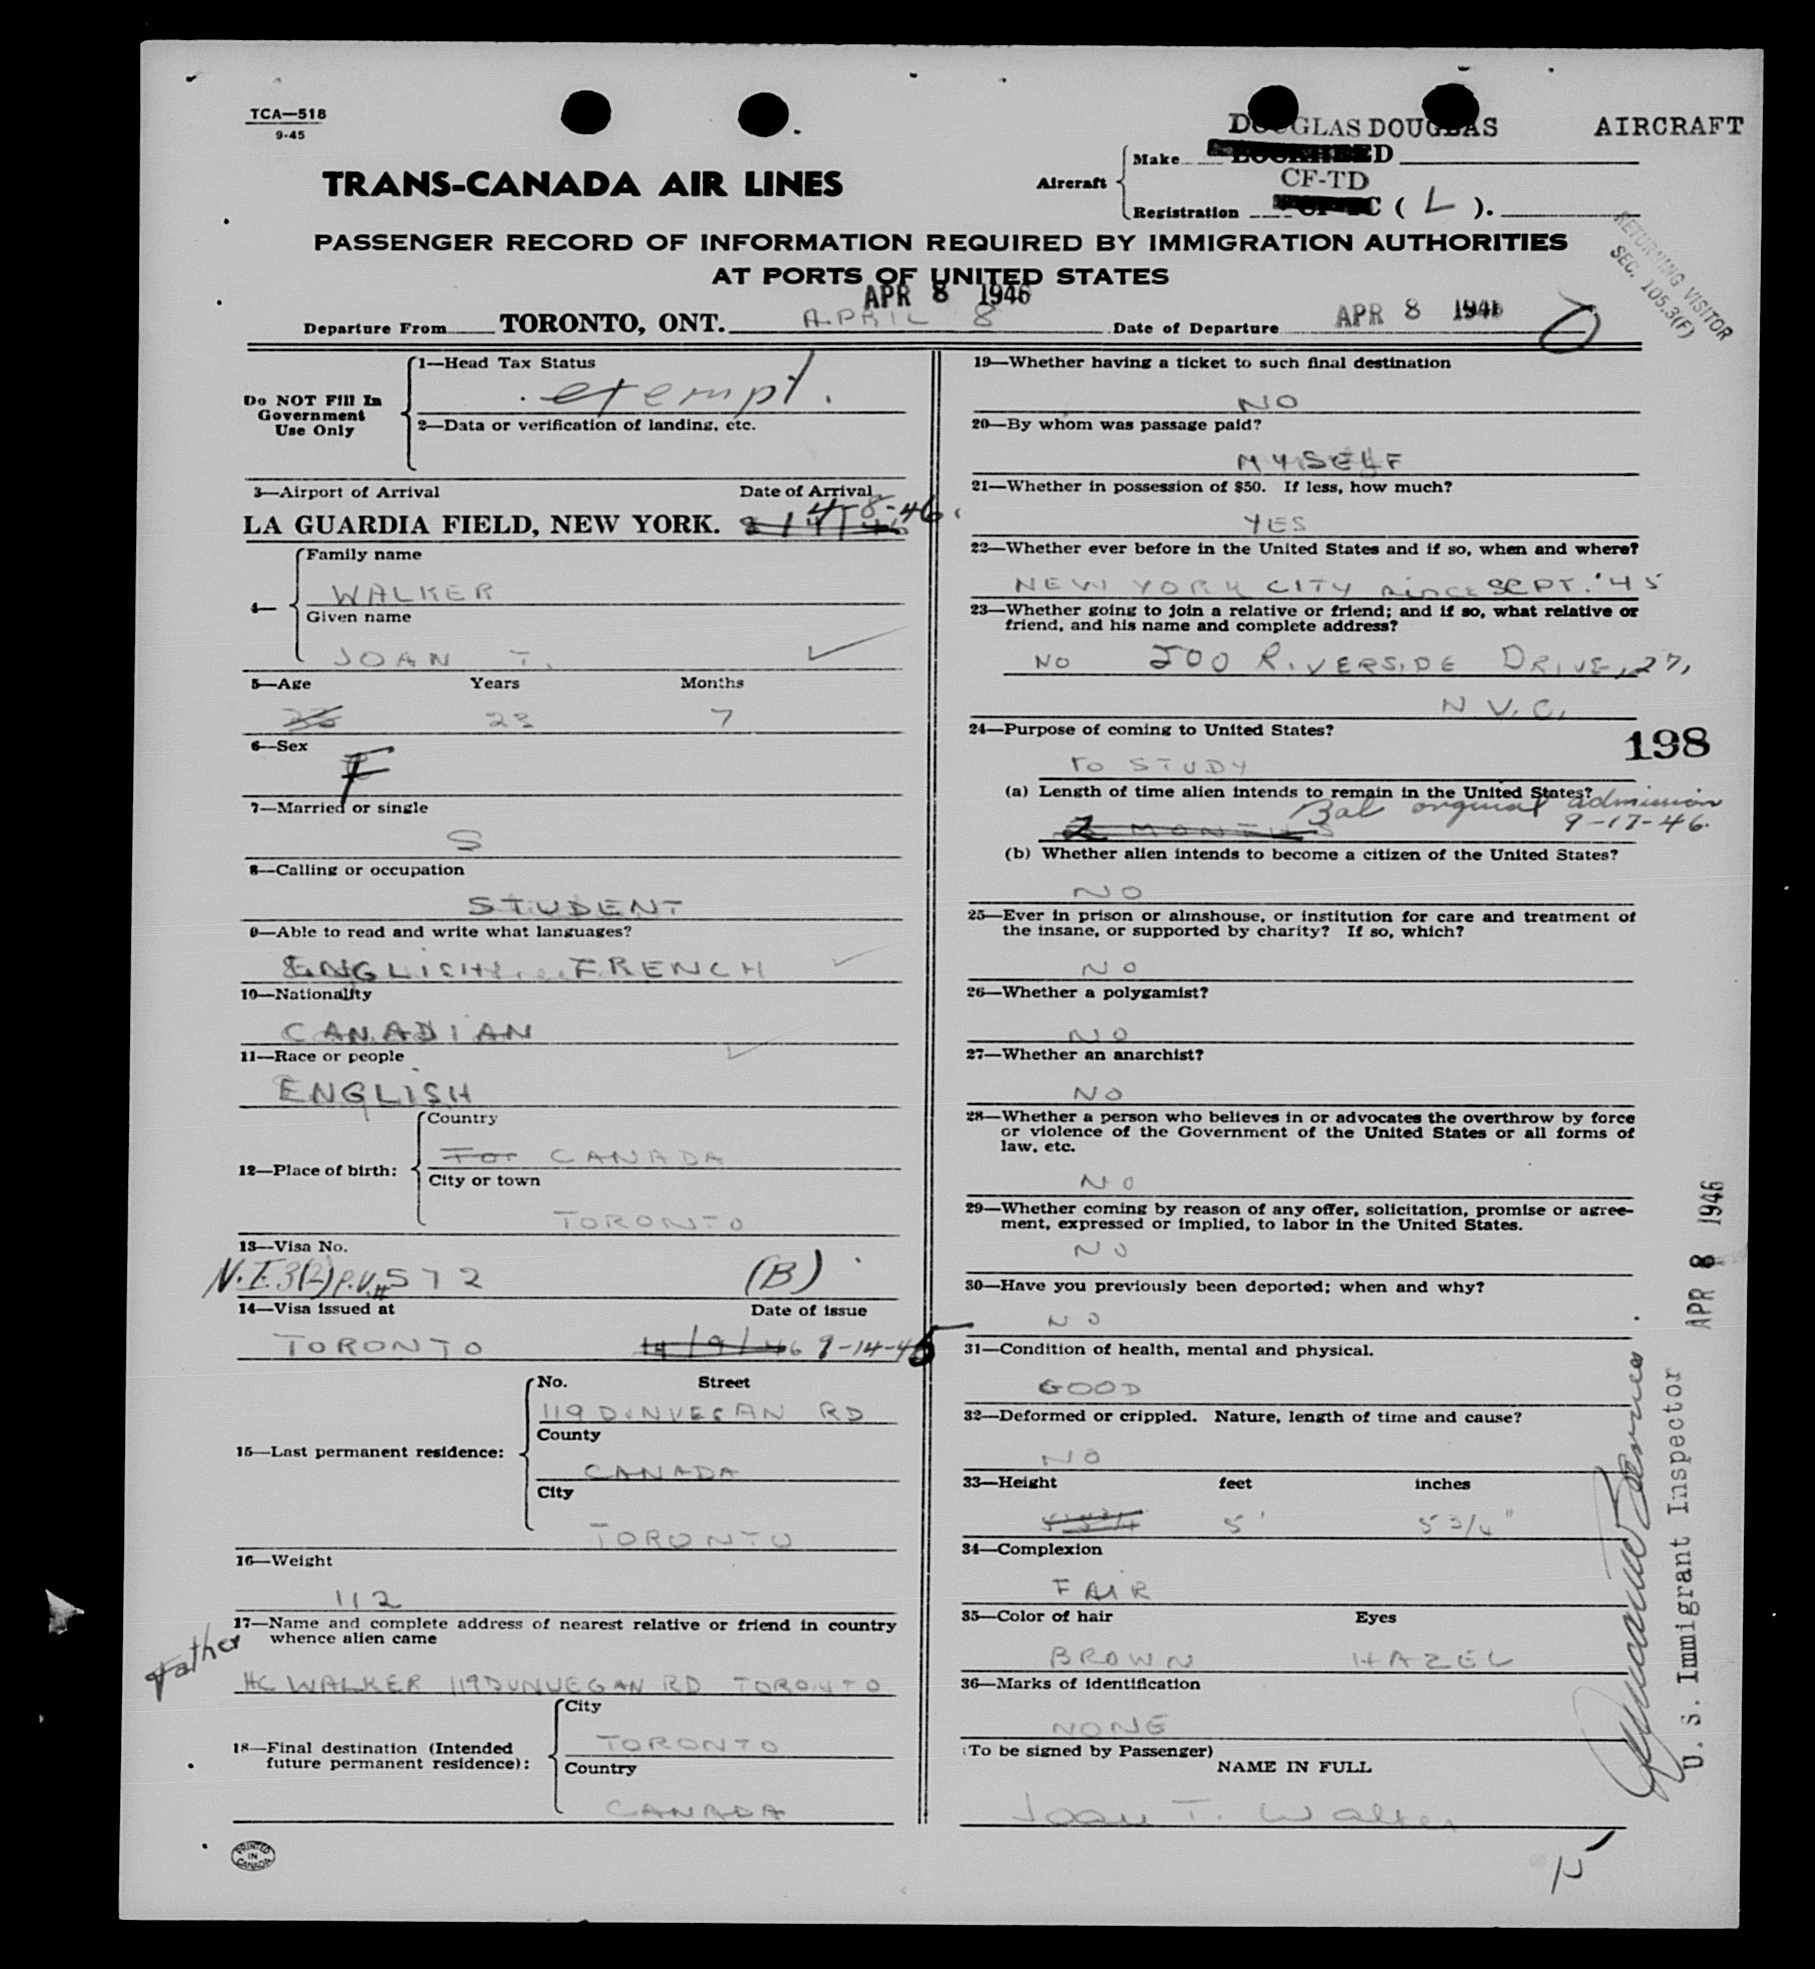 TCA—518
9-45
DOUGLAS DOUGLAS AIRCRAFT
TRANS-CANADA AIR LINES
Aircraft
Make LOCKHEED
CF-TD
Registration CF-TC ( L ).
RETURNING VISITOR
SEC. 105.3(F)
PASSENGER RECORD OF INFORMATION REQUIRED BY IMMIGRATION AUTHORITIES
AT PORTS OF UNITED STATES
APR 8 1946
Departure From TORONTO, ONT. APRIL 8 Date of Departure APR 8 1946
Do NOT Fill In
Government
Use Only
1—Head Tax Status
exempt.
2—Data or verification of landing, etc.
3—Airport of Arrival Date of Arrival
LA GUARDIA FIELD, NEW YORK. 4-8-46
4—
Family name
WALKER
Given name
JOAN T.
5—Age Years Months
23 7
6—Sex
F
7—Married or single
S
8—Calling or occupation
STUDENT
9—Able to read and write what languages?
ENGLISH FRENCH
10—Nationality
CANADIAN
11—Race or people
ENGLISH
12—Place of birth:
Country
Tor CANADA
City or town
TORONTO
13—Visa No.
N.I. 3(2) P.V.# 572 (B)
14—Visa issued at Date of issue
TORONTO 14/9/46 9-14-45
15—Last permanent residence:
No. Street
119 DUNVEGAN RD
County
CANADA
City
TORONTO
16—Weight
112
17—Name and complete address of nearest relative or friend in country
whence alien came
Father
HC WALKER 119 DUNVEGAN RD TORONTO
18—Final destination (Intended
future permanent residence):
City
TORONTO
Country
CANADA
PRINTED
IN
CANADA
19—Whether having a ticket to such final destination
NO
20—By whom was passage paid?
MYSELF
21—Whether in possession of $50. If less, how much?
YES
22—Whether ever before in the United States and if so, when and where?
NEW YORK CITY since SEPT. '45
23—Whether going to join a relative or friend; and if so, what relative or
friend, and his name and complete address?
NO 500 RIVERSIDE DRIVE, 27,
N.Y.C.
24—Purpose of coming to United States?
198
TO STUDY
(a) Length of time alien intends to remain in the United States?
Bal original admission
2 MONTHS 9-17-46.
(b) Whether alien intends to become a citizen of the United States?
NO
25—Ever in prison or almshouse, or institution for care and treatment of
the insane, or supported by charity? If so, which?
NO
26—Whether a polygamist?
NO
27—Whether an anarchist?
NO
28—Whether a person who believes in or advocates the overthrow by force
or violence of the Government of the United States or all forms of
law, etc.
NO
29—Whether coming by reason of any offer, solicitation, promise or agree-
ment, expressed or implied, to labor in the United States.
NO
30—Have you previously been deported; when and why?
NO
31—Condition of health, mental and physical.
GOOD
32—Deformed or crippled. Nature, length of time and cause?
NO
33—Height feet inches
5' 5 3/4"
34—Complexion
FAIR
35—Color of hair Eyes
BROWN HAZEL
36—Marks of identification
NONE
(To be signed by Passenger)
NAME IN FULL
Joan T. Walker
U. S. Immigrant Inspector
APR 8 1946